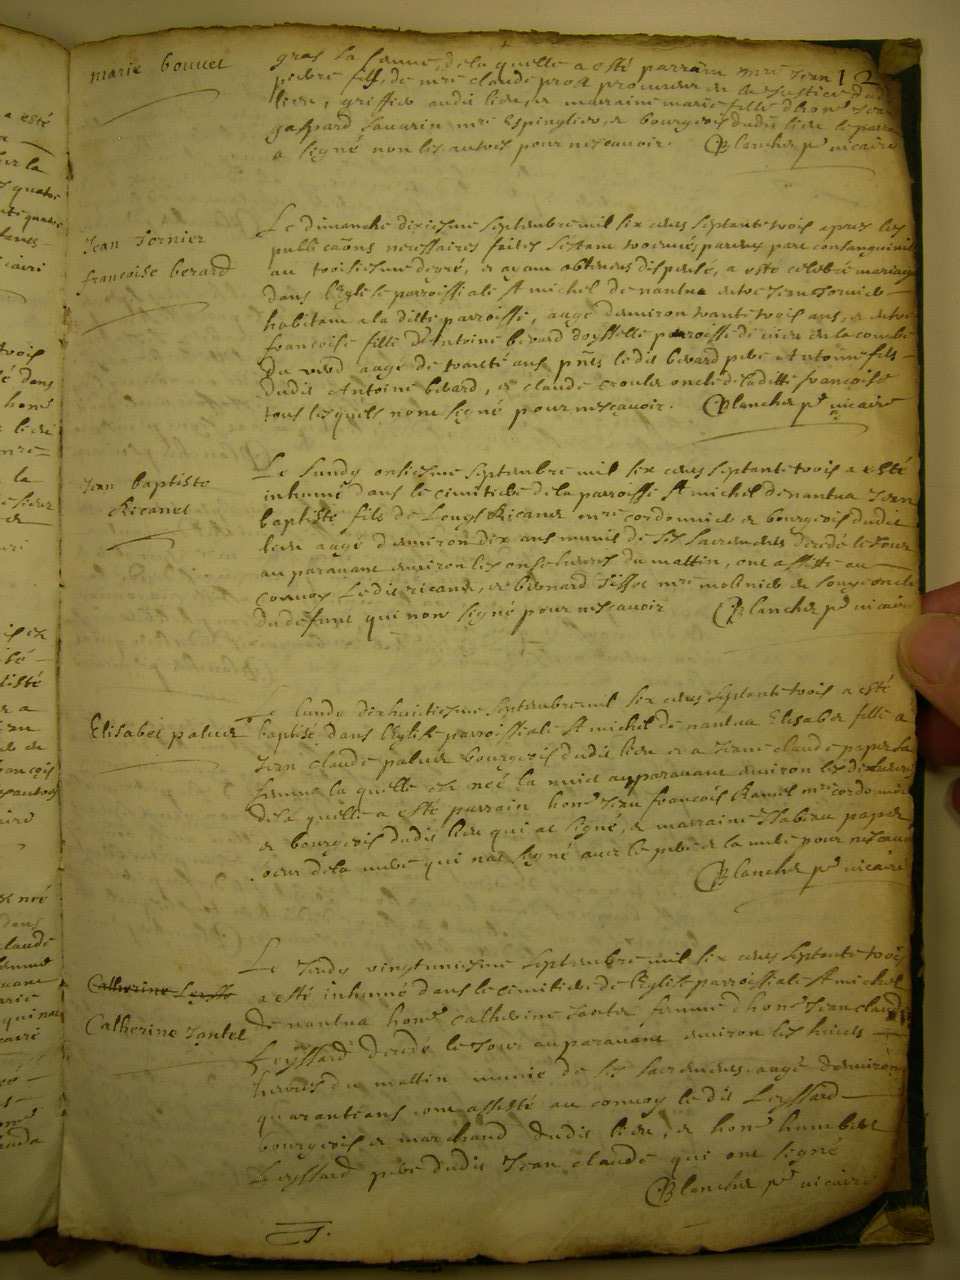 12
marie bouvet
gras sa femme, de la quelle a esté parrain mre Jean
pierre fils de mre claude prost procureur en la Justice dud
lieu, greffier audit lieu, et marraine marie fille d'hon. Jean
gaspard Sauarin mre Espinglier et bourgeois dudit lieu le parrain
a signé non les autres pour ne scauoir. Blanchet pre vicaire
Jean Tornier
francoise berard
Le dimanche dixiesme septembre mil six cens septante trois apres les
publicaons necessaires faites sestant trouvés parens par consanguinité
au troisiesme degré, et ayant obtenus dispense, a esté celebré mariage
dans l'Eglise parroissiale st michel de nantua entre Jean Tornier
habitant a la ditte parroisse, aagé denuiron trante trois ans, et entre
francoise fille d'Antoine berard parroisse de
aagé de trante ans pnts ledit berard pere Antoine fils
dudit Antoine berard, et claude oncle de laditte francoise
tous lesquels nont signé pour ne scauoir. Blanchet pre vicaire
Jean baptiste
Ricanet
Le Lundy onsiesme septembre mil six cens septante trois a esté
inhumé dans le cimitiere de la parroisse st michel de nantua Jean
baptiste fils de Louys Ricanet mre cordonnier et bourgeois dudit
lieu aagé d'enuiron dix ans munis de ses sacremens decedé le Jour
auparauant enuiron les onse heures du mattin, ont assisté au
conuoy Ledit ricanet, et bernard mre et oncle
du defunt qui nont signé pour ne scauoir Blanchet pre vicaire
Elisabet paluet
Le Lundy dixhuictiesme septembre mil six cens septante trois a esté
baptisé dans l'Eglise parroissiale st michel de nantua Elisabet fille a
Jean claude paluet bourgeois dudit lieu et a Jeane claude papet sa
femme la quelle est née la nuict auparauant enuiron les dix heures
de la quelle a esté parrain hon. Jean francois Ramel mre cordonnier
et bourgeois dudit lieu qui a signé, et marraine Isabeau papet
soeur de la mere qui na signé auec le pere et la mere pour ne scauoir
Blanchet pre vicaire
Catherine
Catherine Jantet
Le Jeudy vingtuniesme septembre mil six cens septante trois
a esté inhumé dans le cimitiere de l'Eglise parroissiale st michel
de nantua hon. catherine Jantet femme d'hon. Jean claude
Leyssard decedé le Jour auparauant enuiron les huict
heures du mattin munie de ses sacremens aagé denuiron
quarantians ont assisté au conuoy ledit Leyssard
bourgeois et marchand dudit lieu, et hon. humbert
Leyssard pere dudit Jean claude qui ont signé
Blanchet pre vicaire